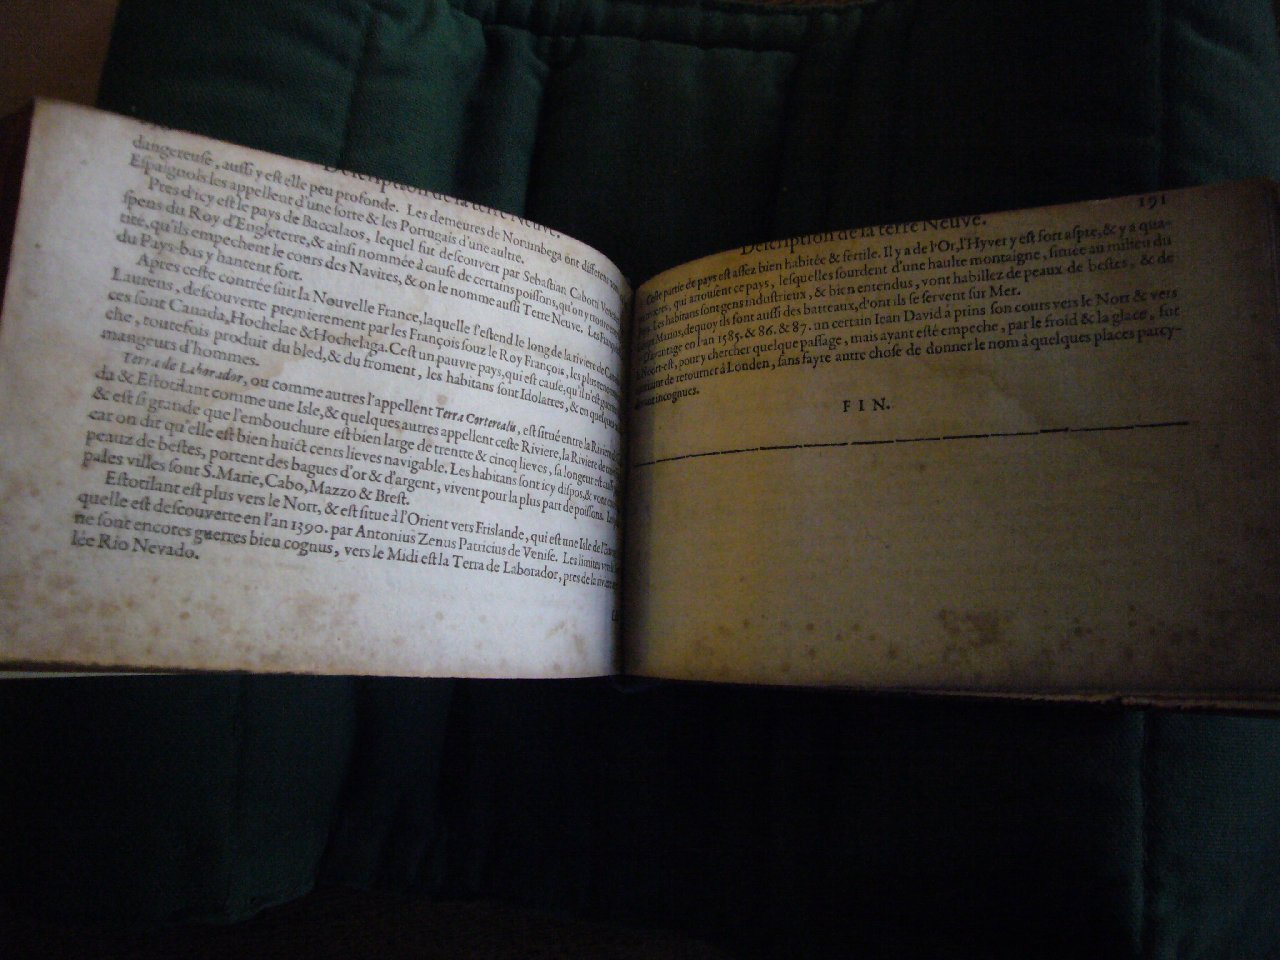 Description de la terre Neuve.
dangereuse, aussi y est elle peu profonde. Les demeures de Norumbega ont differens
Espaignols les appellent d'une sorte & les Portugais d'une aultre.
Pres d'icy est le pays de Baccalaos, lequel fut descouvert par Sebastian Cabotti
spens du Roy d'Engleterre, & ainsi nommée à cause de certains poissons, qu'on y
tité, qu'ils empechent le cours des Navires, & on le nomme aussi Terre Neuve. Les
du Pays-bas y hantent fort.
Apres ceste contrée suit la Nouvelle France, laquelle s'estend le long de la riviere de
Laurens, descouverte premierement par les François souz le Roy François, les
ces sont Canada, Hochelae & Hochelaga. C'est un pauvre pays, qui est cause, qu'il n'est
che, toutefois produit du bled, & du froment, les habitans sont Idolatres, & en quelque
mangeurs d'hommes.
Terra de Laborador, ou comme autres l'appellent Terra Corterealis, est situé entre la Riviere
da & Estotilant comme une Isle, & quelques autres appellent ceste Riviere, la Riviere de
& est si grande que l'embouchure est bien large de trentte & cinq lieves, sa longeur est
car on dit qu'elle est bien huict cents lieves navigable. Les habitans sont icy dispos, &
peauz de bestes, portent des bagues d'or & d'argent, vivent pour la plus part de poissons.
pales villes sont S. Marie, Cabo, Mazzo & Brest.
Estotilant est plus vers le Nort, & est situe à l'Orient vers Frislande, qui est une Isle de
quelle est descouverte en l'an 1390. par Antonius Zenus Patricius de Venise. Les limites
ne sont encores guerres bien cognus, vers le Midi est la Terra de Laborador, pres de la
lée Rio Nevado.
191
Description de la terre Neuve.
Ceste partie de pays est assez bien habitée & fertile. Il y a de l'Or, l'Hyver y est fort aspre, & y a qua-
rivieres, qui arrousent ce pays, lesquelles sourdent d'une haulte montaigne, située au milieu du
Les habitans sont gens industrieux, & bien entendus, vont habillez de peaux de bestes, & de
Marins, de quoy ils sont aussi des batteaux, d'ont ils se servent sur Mer.
D'avantage en l'an 1585. & 86. & 87. un certain Iean David à prins son cours vers le Nort & vers
Noort-est, pour y chercher quelque passage, mais ayant esté empeche, par le froid & la glace, fut
de retourner à Londen, sans fayre autre chose de donner le nom à quelques places parcy-
incognues.
FIN.